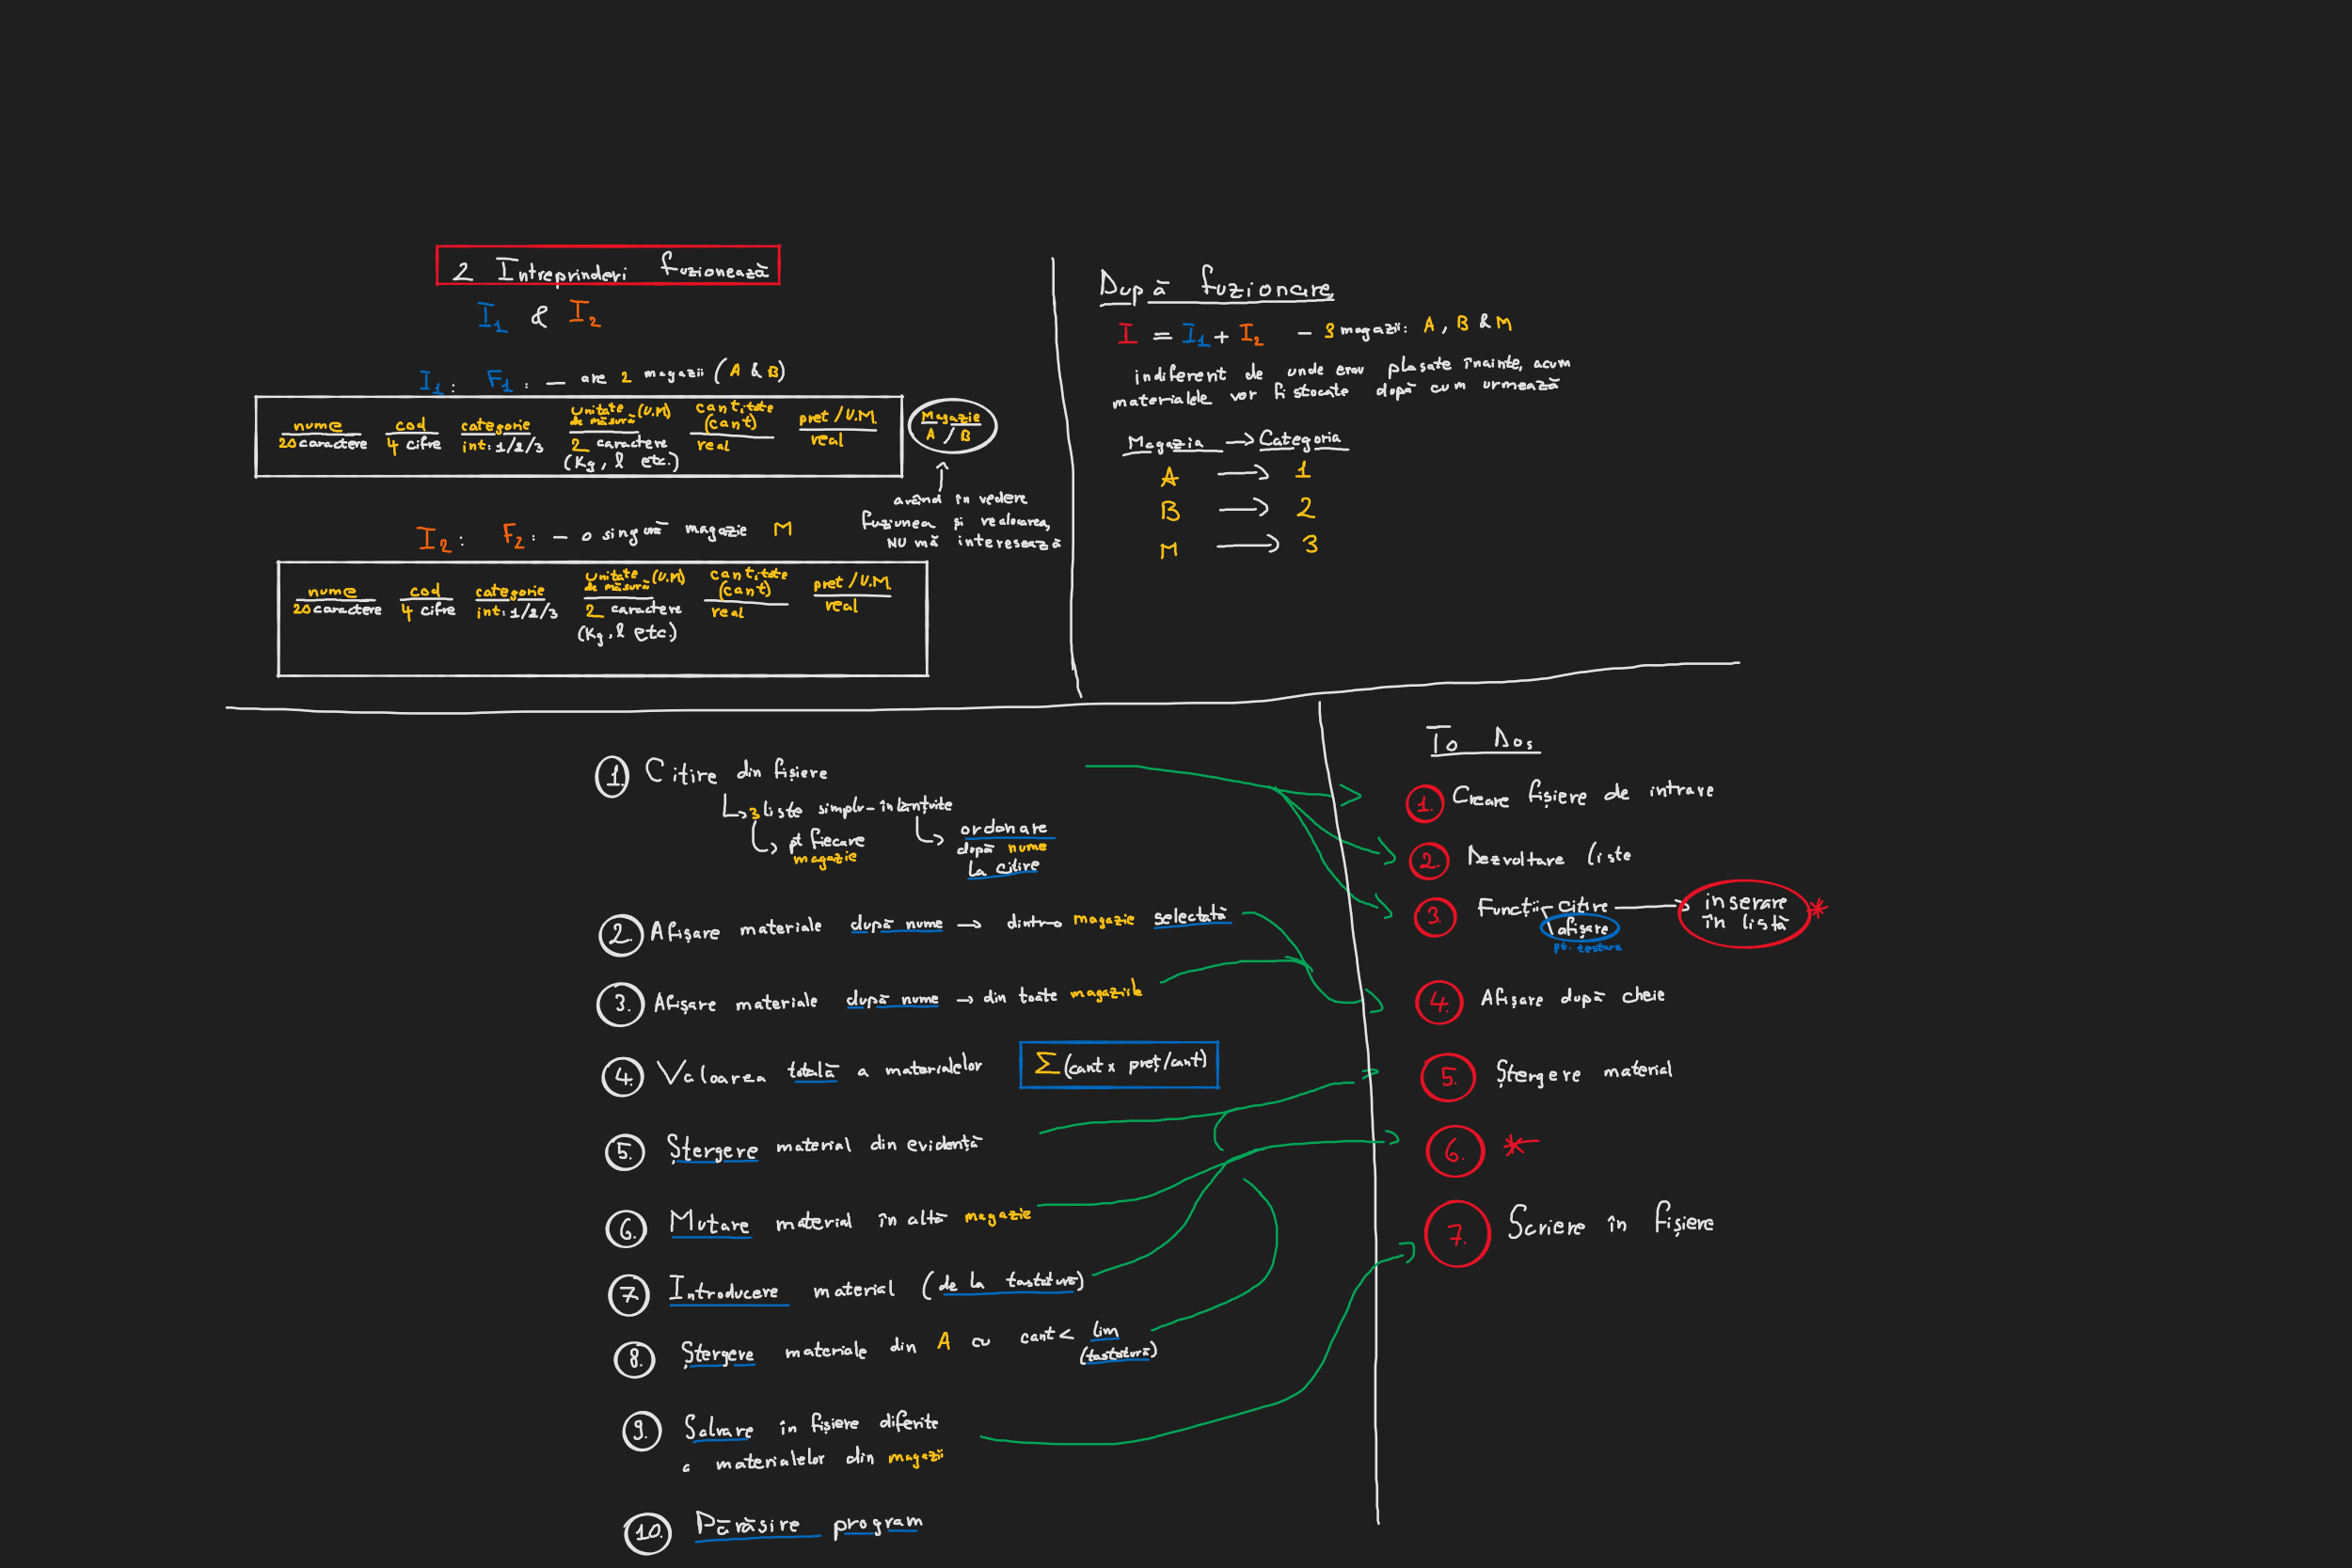 2 Intreprinderi fuzionează
I1 & I2
I1: F1: – are 2 magazii (A & B)
nume cod categorie unitate de măsură (U.M) cantitate (cant) pret / U.M. Magazie
20 caractere 4 cifre int: 1/2/3 2 caractere real real A / B
(Kg, l etc.)
având în vedere
fuziunea și realocarea,
NU mă interesează
I2: F2: – o singură magazie M
nume cod categorie unitate de măsură (U.M) cantitate (cant) pret / U.M.
20 caractere 4 cifre int: 1/2/3 2 caractere real real
(Kg, l etc.)
După fuzionare
I = I1 + I2 – 3 magazii: A, B & M
indiferent de unde erau plasate înainte, acum
materialele vor fi stocate după cum urmează
Magazia → Categoria
A → 1
B → 2
M → 3
1. Citire din fișiere
↳ 3 liste simplu-înlănțuite
↳ pt fiecare
magazie
↳ ordonare
după nume
la citire
2. Afișare materiale după nume → dintr-o magazie selectată
3. Afișare materiale după nume → din toate magaziile
4. Valoarea totală a materialelor Σ(cant x preț/cant)
5. Ștergere material din evidență
6. Mutare material în altă magazie
7 Introducere material (de la tastatură)
8. Ștergere materiale din A cu cant < lim
(tastatură)
9. Salvare în fișiere diferite
a materialelor din magazii
10. Părăsire program
To Dos
1. Creare fișiere de intrare
2. Dezvoltare liste
3. Funcții citire → inserare
în listă *
afișare
pt. testare
4. Afișare după cheie
5. Ștergere material
6. *
7. Scriere în fișiere